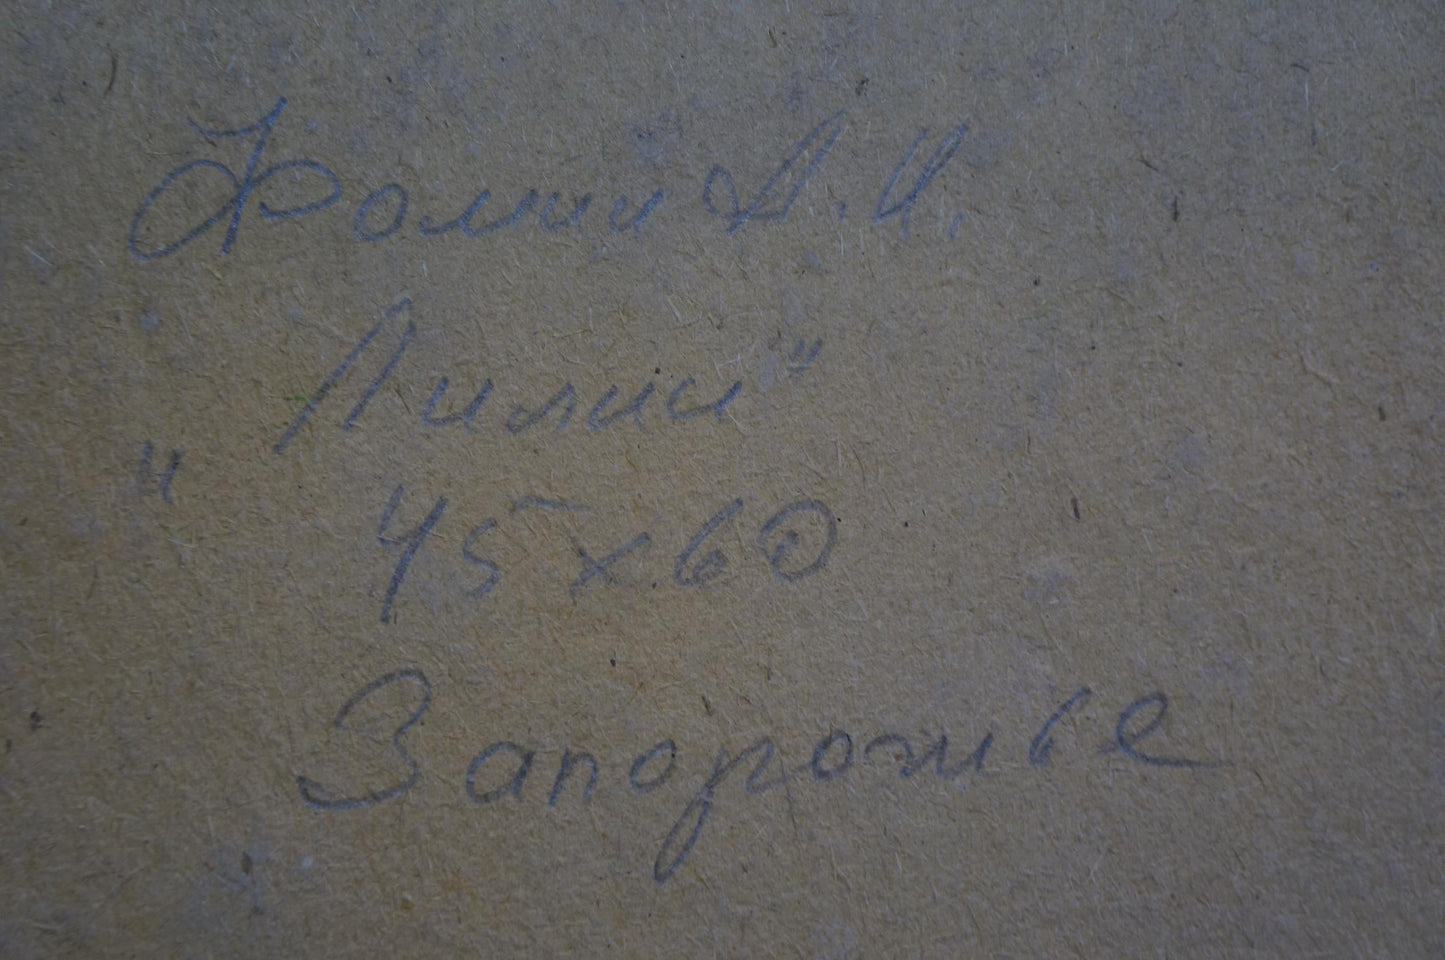 Фомин А. И.
„Лилии"
45х60
Запорожье